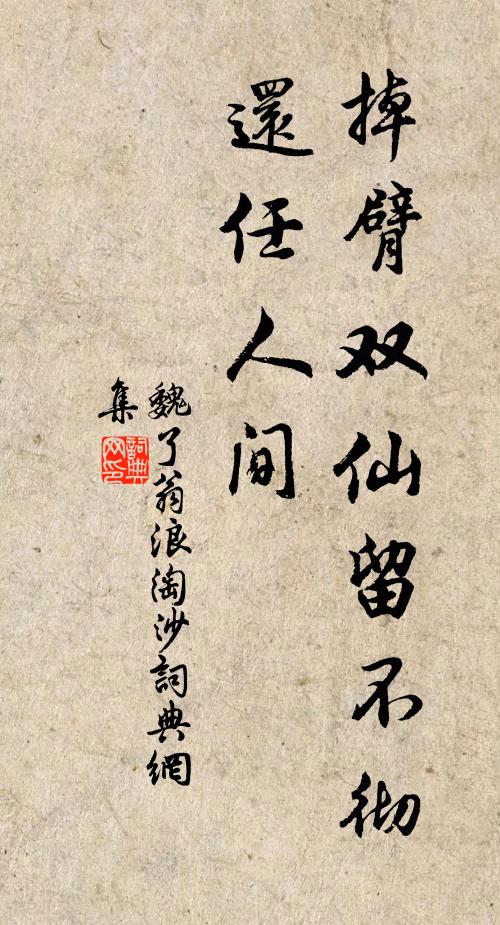 掉臂双仙留不彻
還任人间
魏了翁浪淘沙詞典網
集
詞典网印